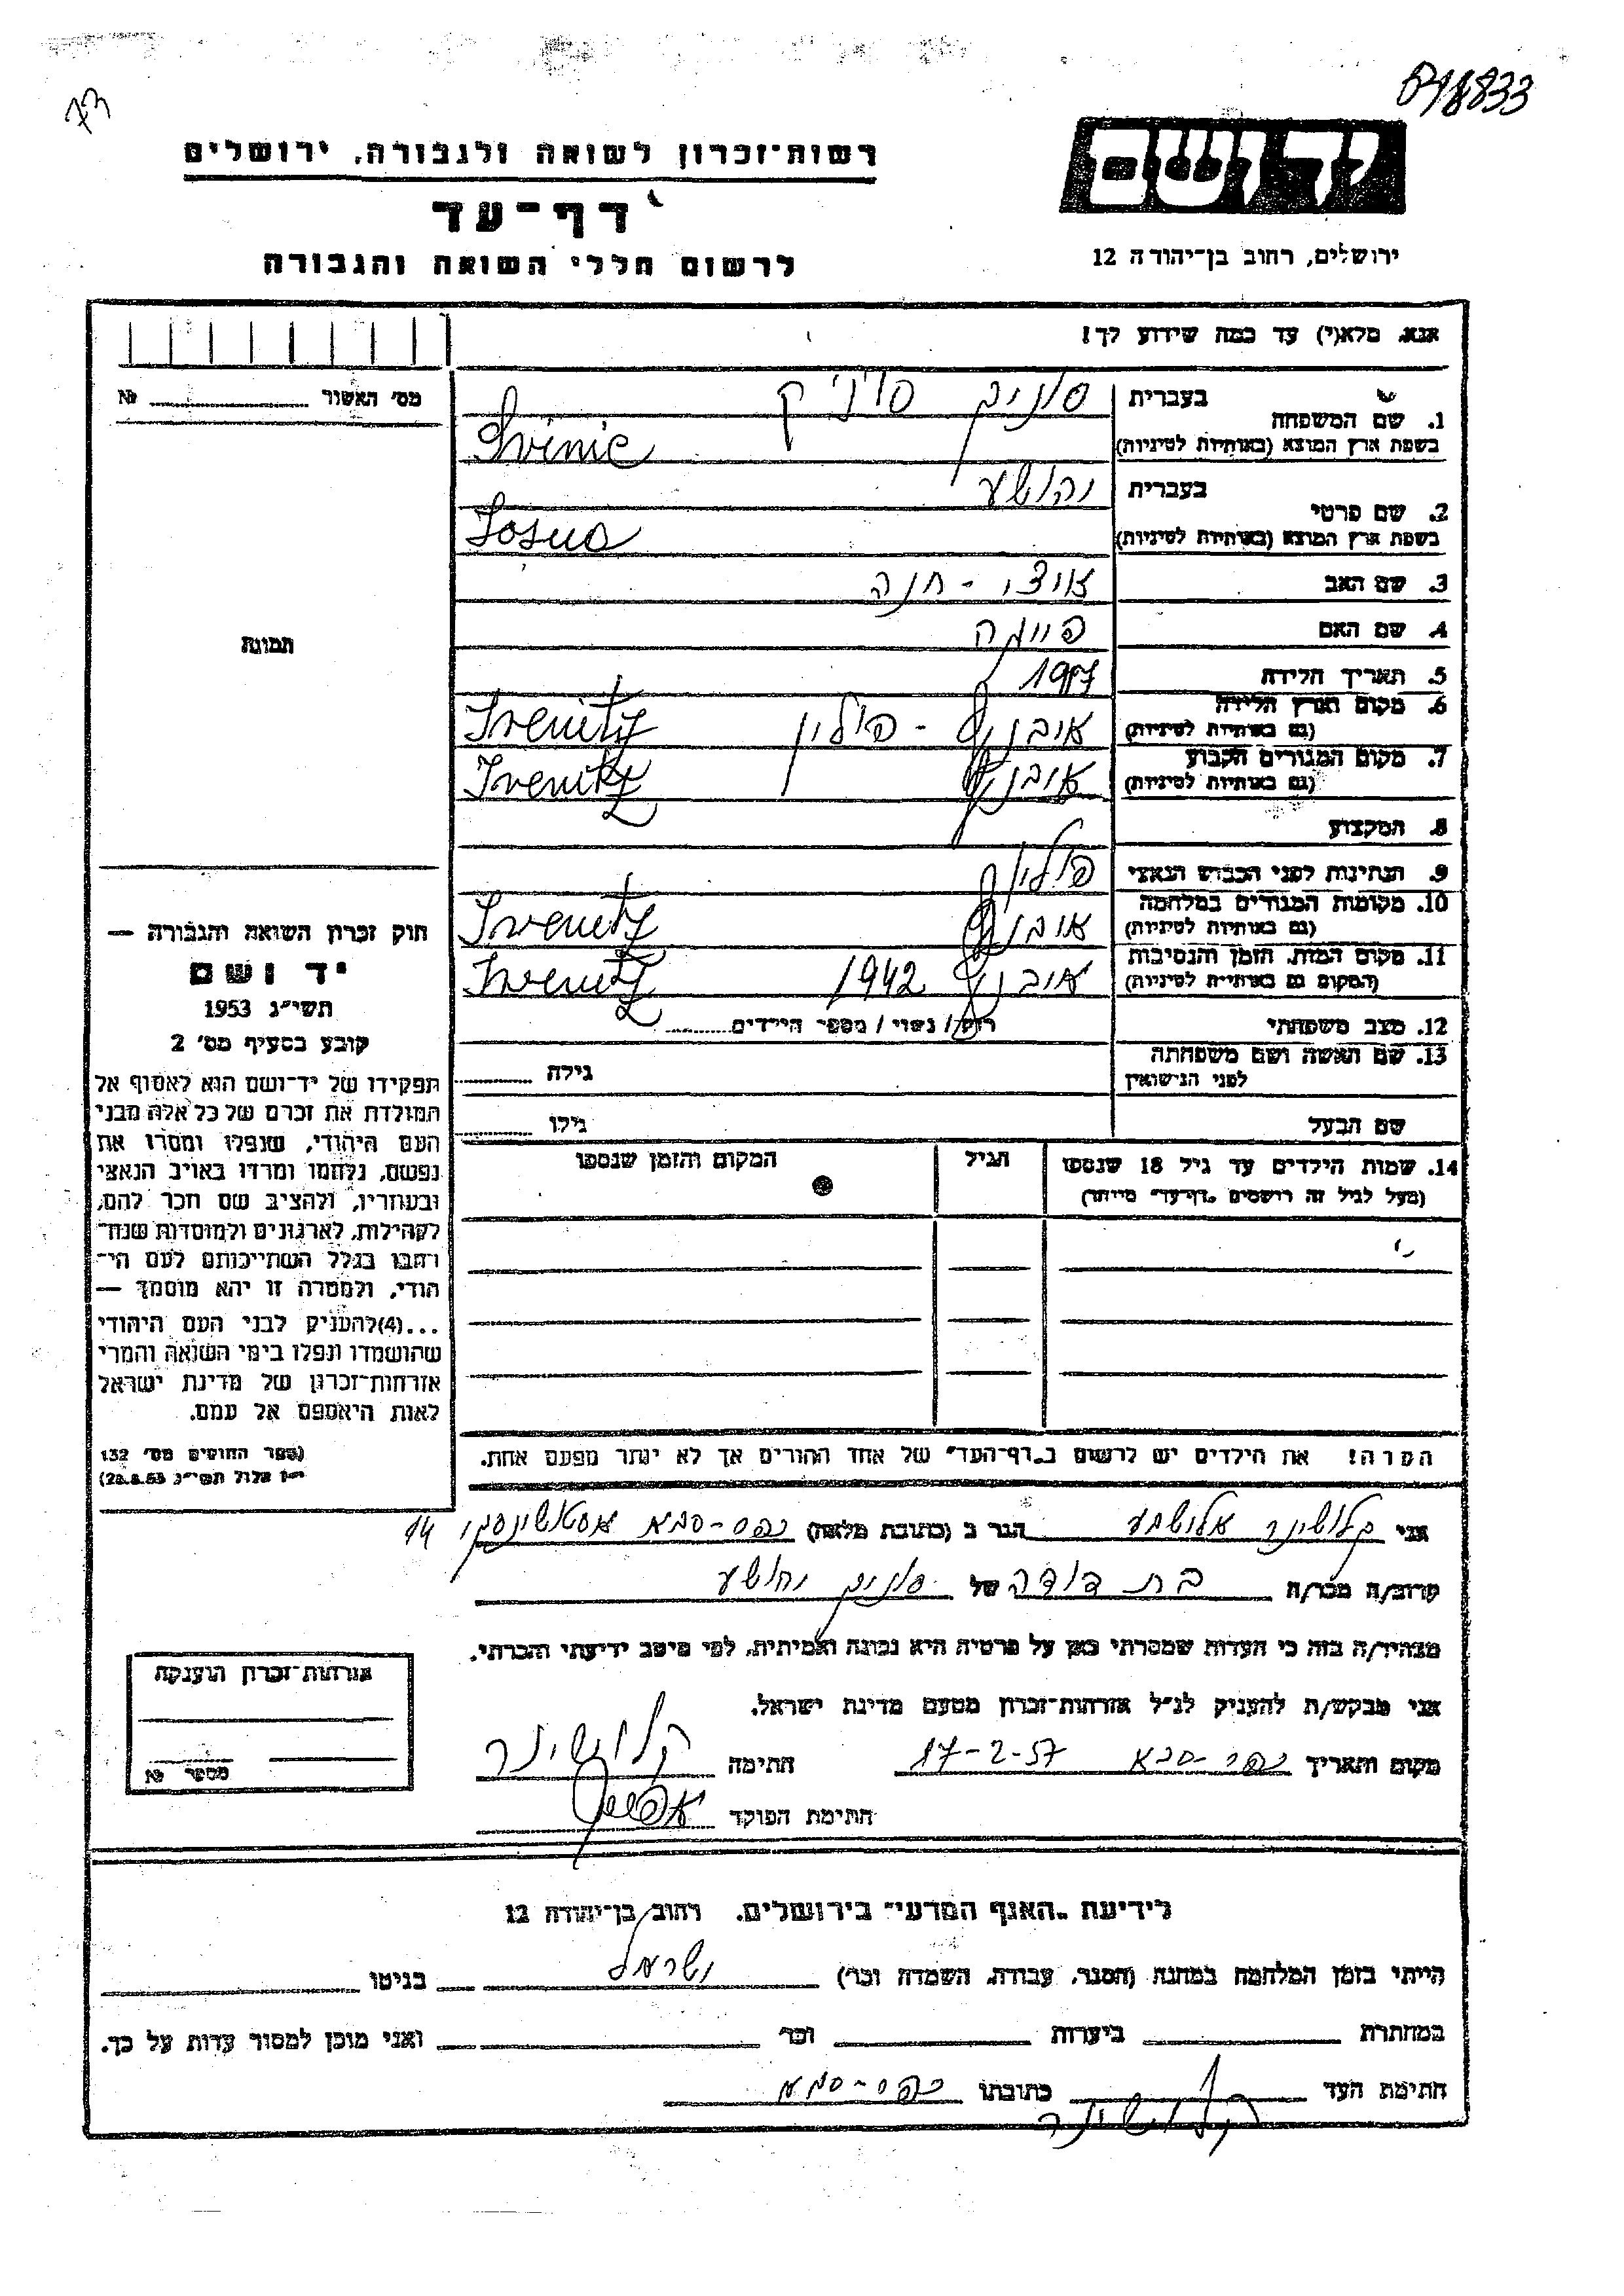 73
018833
רשות־זכרון לשואה ולגבורה, ירושלים
יד ושם
דף־עד
ירושלים, רחוב בן־יהודה 12
לרשום חללי השואה והגבורה
אנא, מלא(י) עד כמה שידוע לך!
מס' האשור № 
1. שם המשפחה
בעברית סוניק סויניק
בשפת ארץ המוצא (באותיות לטיניות) Svinic
2. שם פרטי
בעברית יהושע
בשפת ארץ המוצא (באותיות לטיניות) Josua
3. שם האב - חנה
4. שם האם
5. תאריך הלידה 1907
6. מקום וארץ הלידה
(גם באותיות לטיניות) איבניץ - פולין Ivenitz
7. מקום המגורים הקבוע
(גם באותיות לטיניות) איבניץ Ivenitz
8. המקצוע
9. הנתינות לפני הכבוש הנאצי פולין
10. מקומות המגורים במלחמה
(גם באותיות לטיניות) איבניץ Ivenitz
11. מקום המות, הזמן והנסיבות
(המקום גם באותיות לטיניות) איבניץ 1942 Ivenitz
12. מצב משפחתי רוק / נשוי / מספר הילדים
13. שם האשה ושם משפחתה
לפני הנישואין גילה
שם הבעל גילו
14. שמות הילדים עד גיל 18 שנספו הגיל המקום והזמן שנספו
(מעל לגיל זה רושמים „דף־עד" מיוחד)
תמונה
חוק זכרון השואה והגבורה —
יד ושם
תשי"ג 1953
קובע בסעיף מס' 2
תפקידו של יד־ושם הוא לאסוף אל
המולדת את זכרם של כל אלה מבני
העם היהודי, שנפלו ומסרו את
נפשם, נלחמו ומרדו באויב הנאצי
ובעוזריו, ולהציב שם וזכר להם,
לקהילות, לארגונים ולמוסדות שנח־
רבו בגלל השתייכותם לעם הי־
הודי, ולמטרה זו יהא מוסמך —
...(4)להעניק לבני העם היהודי
שהושמדו ונפלו בימי השואה והמרי
אזרחות־זכרון של מדינת ישראל
לאות היאספם אל עמם.
(ספר החוקים מס' 132
י"ז אלול תשי"ג 28.8.53)
הערה! את הילדים יש לרשום ב„דף־העד" של אחד ההורים אך לא יותר מפעם אחת.
אני קלושינר אלישבע הגר ב (כתובת מלאה) כפר-סבא 14
קרוב/ה מכר/ה בת דודה של סוניק יהושע
מצהיר/ה בזה כי העדות שמסרתי כאן על פרטיה היא נכונה ואמיתית, לפי מיטב ידיעתי והכרתי.
אני מבקש/ת להעניק לנ"ל אזרחות־זכרון מטעם מדינת ישראל.
מקום ותאריך כפר-סבא 17-2-57 חתימה קלושינר
חתימת הפוקד
אזרחות־זכרון הוענקה
מספר №
לידיעת „האגף המדעי" בירושלים, רחוב בן־יהודה 12
הייתי בזמן המלחמה במחנה (הסגר, עבודה, השמדה וכו') ישראל בגיטו
במחתרת ביערות וכו' ואני מוכן למסור עדות על כך.
חתימת העד קלושינר כתובתו כפר-סבא